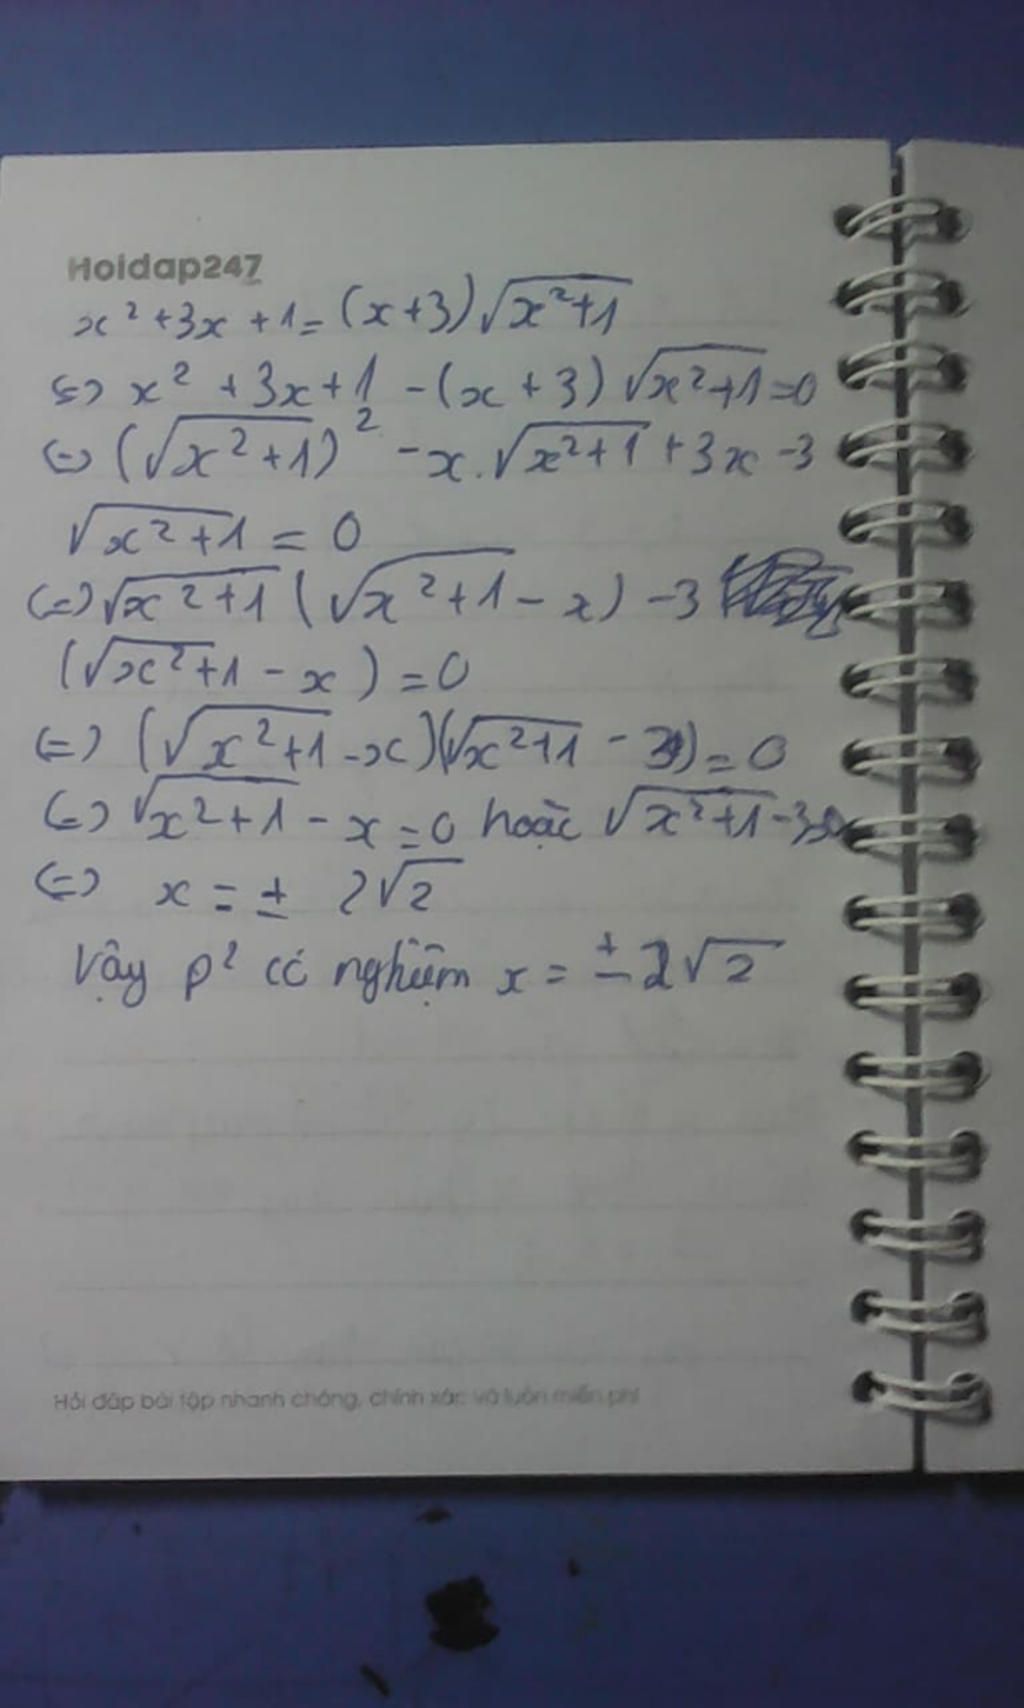 Hoidap247
x² + 3x + 1 = (x+3)√(x²+1)
<=> x² + 3x + 1 - (x + 3) √(x²+1) = 0
<=> (√(x²+1))² - x.√(x²+1) + 3x - 3
√(x²+1) = 0
<=> √(x²+1) (√(x²+1) - x) - 3
(√(x²+1) - x) = 0
<=> (√(x²+1) - x)(√(x²+1) - 3) = 0
<=> √(x²+1) - x = 0 hoặc √(x²+1) - 3
<=> x = ± 2√2
Vậy p² có nghiệm x = ± 2√2
Hỏi đáp bài tập nhanh chóng, chính xác và luôn miễn phí